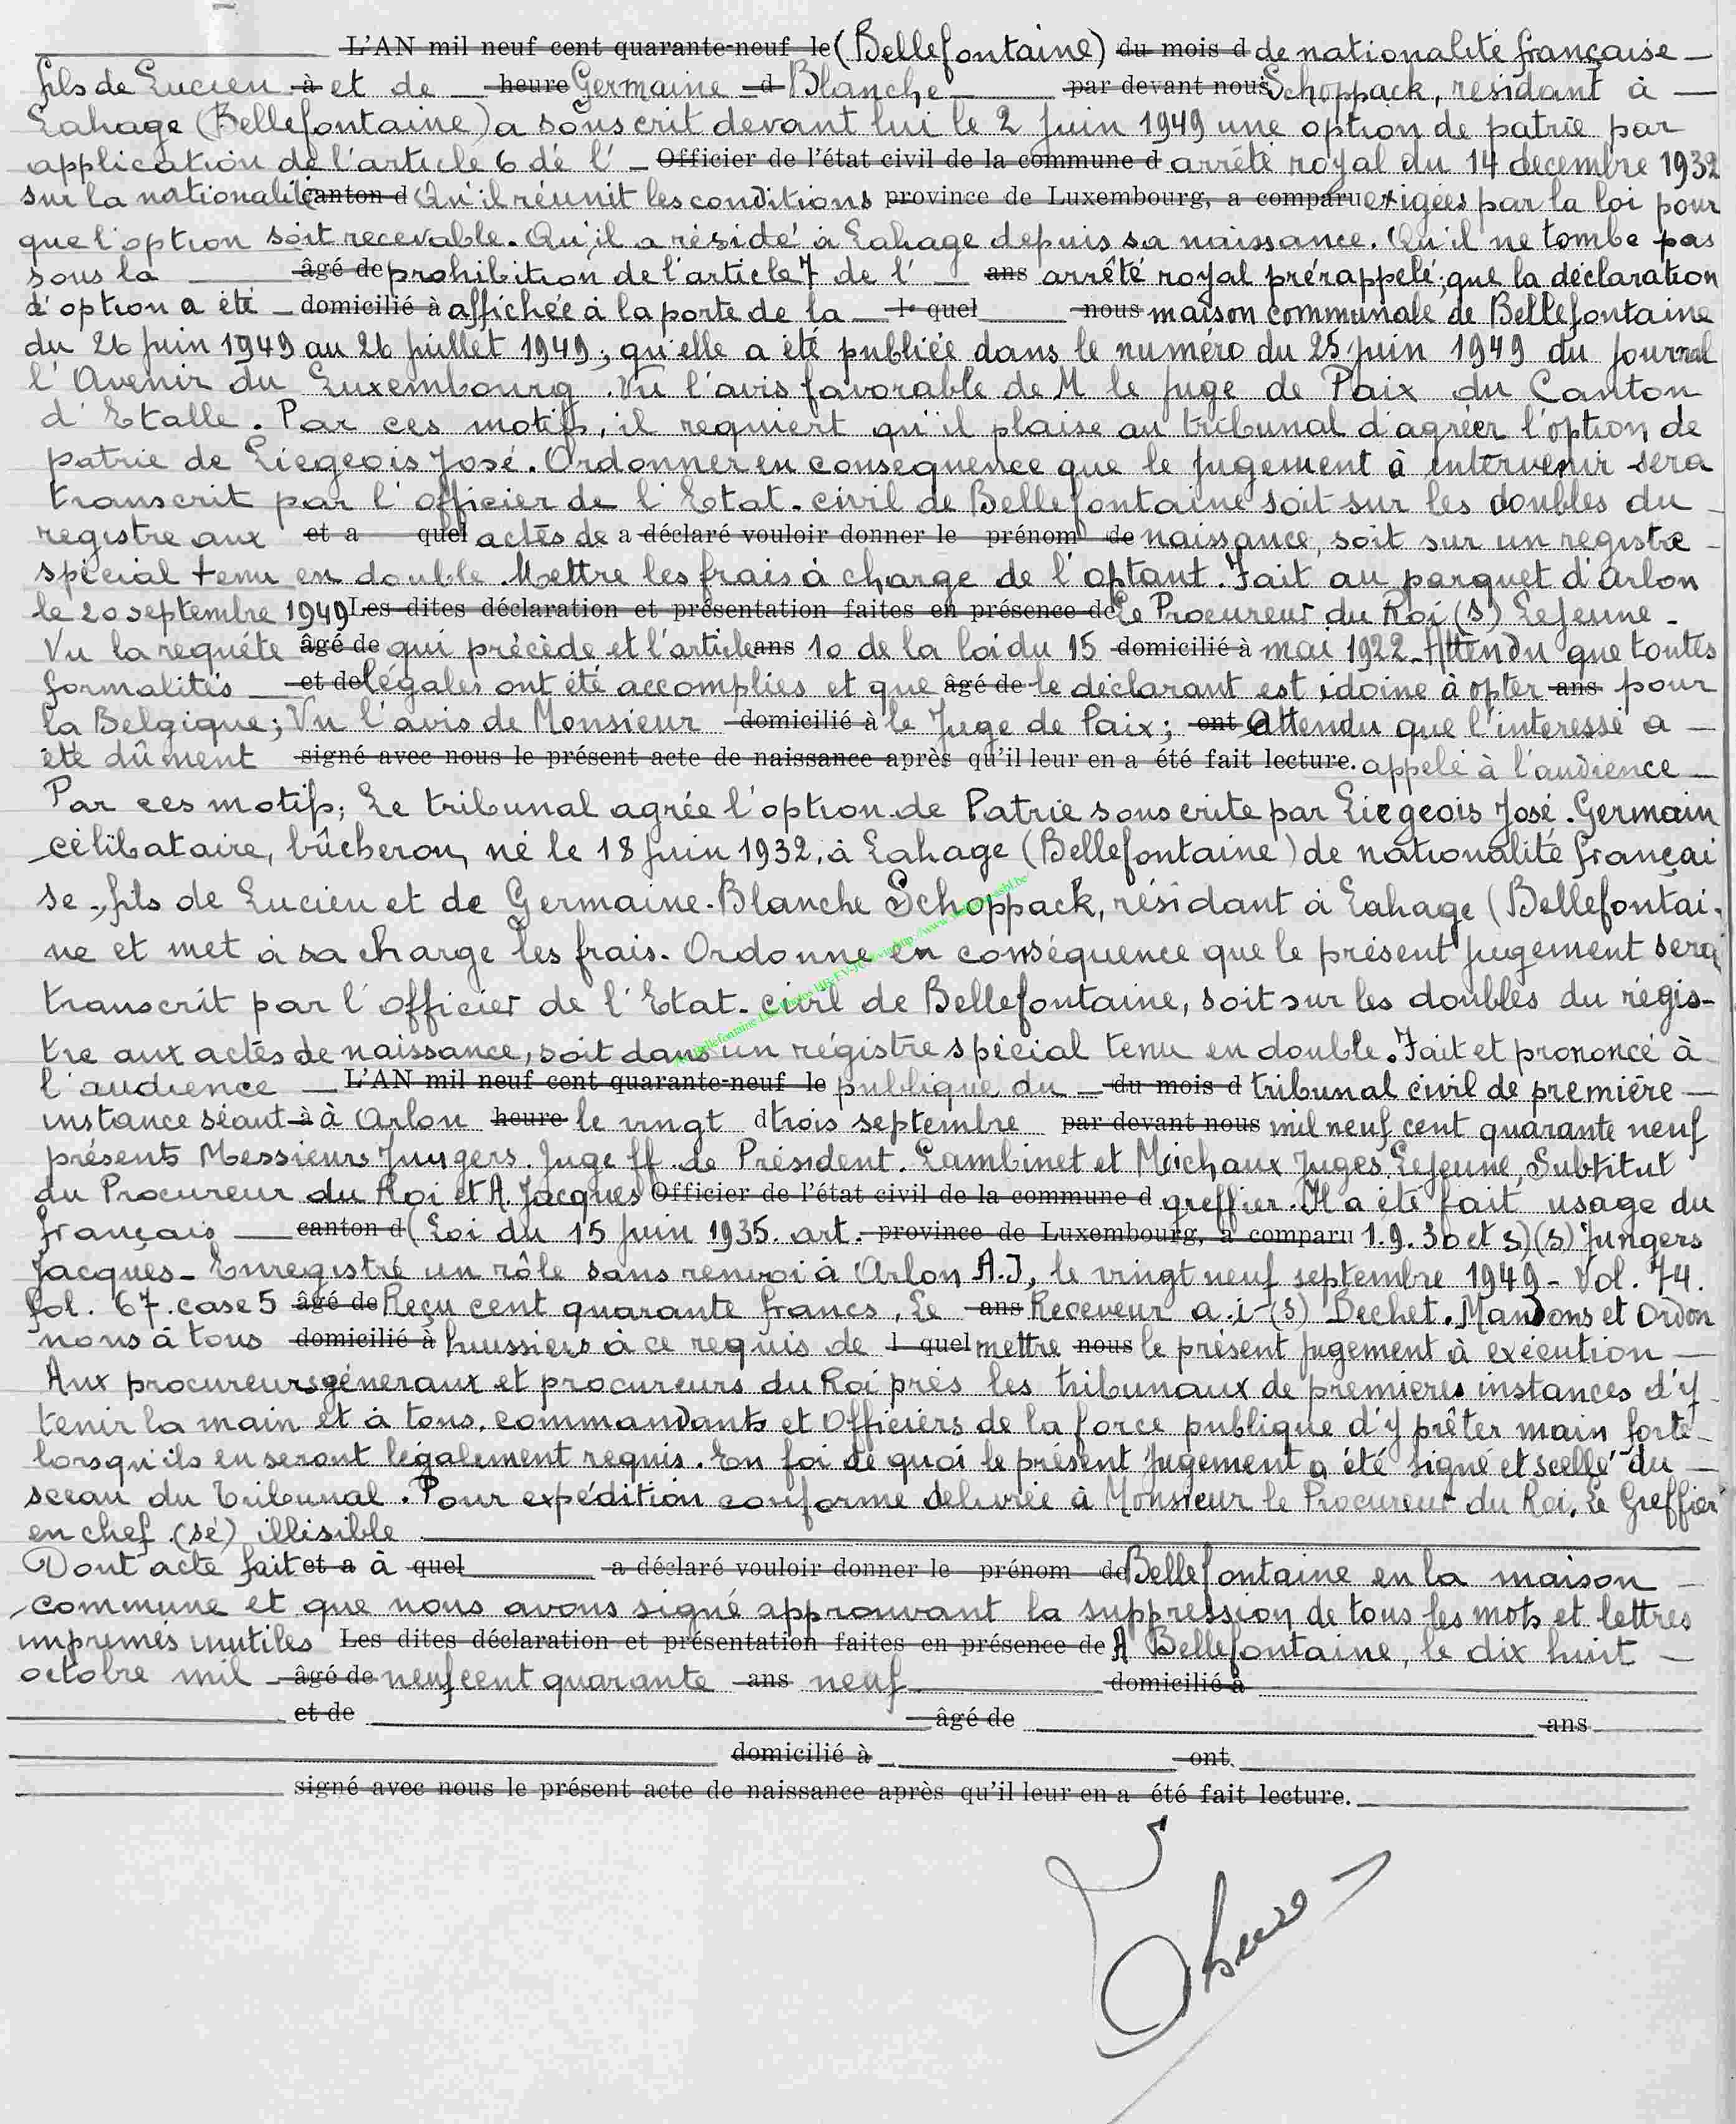 L'AN mil neuf cent quarante-neuf le (Bellefontaine) du mois d de nationalité française
fils de Lucien à et de heure Germaine d Blanche par devant nous Schoppack, résidant à
Lahage (Bellefontaine) a souscrit devant lui le 2 juin 1949 une option de patrie par
application de l'article 6 de l' Officier de l'état civil de la commune d arrêté royal du 14 décembre 1932
sur la nationalité canton d Qu'il réunit les conditions province de Luxembourg, a comparu exigées par la loi pour
que l'option soit recevable. Qu'il a résidé à Lahage depuis sa naissance. Qu'il ne tombe pas
sous la âgé de prohibition de l'article 7 de l' ans arrêté royal prérappelé; que la déclaration
d'option a été domicilié à affichée à la porte de la le quel nous maison communale de Bellefontaine
du 26 juin 1949 au 26 juillet 1949; qu'elle a été publiée dans le numéro du 25 juin 1949 du journal
l'Avenir du Luxembourg. Vu l'avis favorable de M le Juge de Paix du Canton
d'Etalle. Par ces motifs, il requiert qu'il plaise au tribunal d'agréer l'option de
patrie de Liégeois José. Ordonner en conséquence que le jugement à intervenir sera
transcrit par l'officier de l'Etat-civil de Bellefontaine soit sur les doubles du
registre aux et a quel actes de a déclaré vouloir donner le prénom de naissance, soit sur un registre
spécial tenu en double. Mettre les frais à charge de l'optant. Fait au parquet d'Arlon
le 20 septembre 1949 Les dites déclaration et présentation faites en présence de Le Procureur du Roi (s) Lejeune.
Vu la requête âgé de qui précède et l'article ans 10 de la loi du 15 domicilié à mai 1922. Attendu que toutes
formalités et de légales ont été accomplies et que âgé de le déclarant est idoine à opter ans pour
la Belgique; Vu l'avis de Monsieur domicilié à le Juge de Paix; ont Attendu que l'interessé a
été dûment signé avec nous le présent acte de naissance après qu'il leur en a été fait lecture. appelé à l'audience
Par ces motifs; Le tribunal agrée l'option de Patrie souscrite par Liégeois José. Germain
célibataire, bûcheron, né le 18 juin 1932, à Lahage (Bellefontaine) de nationalité françai
se, fils de Lucien et de Germaine-Blanche Schoppack, résidant à Lahage (Bellefontai-
ne et met à sa charge les frais. Ordonne en conséquence que le présent jugement sera
transcrit par l'officier de l'Etat-civil de Bellefontaine, soit sur les doubles du régis-
tre aux actes de naissance, soit dans un régistre spécial tenu en double. Fait et prononcé à
l'audience L'AN mil neuf cent quarante-neuf le publique du du mois d tribunal civil de première
instance séant à à Arlon heure le vingt d trois septembre par devant nous mil neuf cent quarante neuf
présents Messieurs Jungers. Juge ff. de Président. Lambinet et Michaux Juges. Lejeune, Substitut
du Procureur du Roi et A. Jacques Officier de l'état civil de la commune d greffier. Il a été fait usage du
français canton d (Loi du 15 juin 1935. art. province de Luxembourg, a comparu 1.9.30 et s) (s) Jungers
Jacques - Enregistré un rôle sans renvoi à Arlon A.J, le vingt neuf septembre 1949 - Vol. 74.
fol. 67. case 5 âgé de Reçu cent quarante francs. Le ans Receveur a.i - (s) Bechet. Mandons et Ordon
nons à tous domicilié à huissiers à ce requis de l quel mettre nous le présent jugement à exécution
Aux procureurs généraux et procureurs du Roi près les tribunaux de premieres instances d'y
tenir la main et à tous, commandants et Officiers de la force publique d'y prêter main forte
lorsqu'ils en seront légalement requis. En foi de quoi le présent jugement a été signé et scellé du
sceau du tribunal. Pour expédition conforme délivrée à Monsieur le Procureur du Roi. Le Greffier
en chef (sé) illisible
Dont acte fait et a à quel a déclaré vouloir donner le prénom de Bellefontaine en la maison
commune et que nous avons signé approuvant la suppression de tous les mots et lettres
imprimés inutiles Les dites déclaration et présentation faites en présence de A Bellefontaine, le dix huit
octobre mil âgé de neuf cent quarante ans neuf domicilié à
et de âgé de ans
domicilié à ont
signé avec nous le présent acte de naissance après qu'il leur en a été fait lecture.